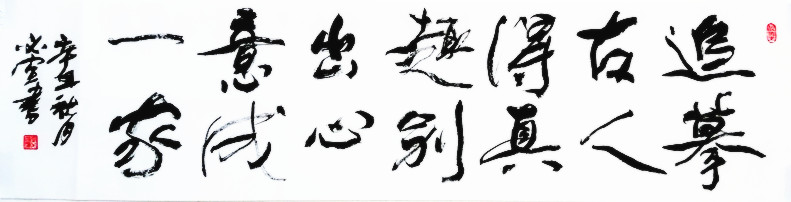 追摹
古人
得真
趣别
出心
意成
一家
辛丑秋月
書